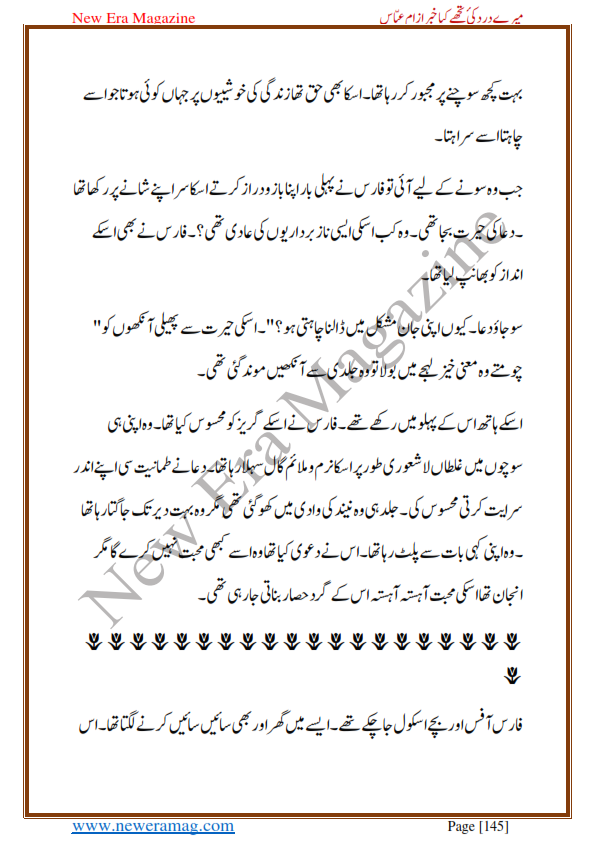 New Era Magazine میرے درد کی تجھے کیا خبر از ام عبّاس
بہت کچھ سوچنے پر مجبور کر رہا تھا۔ اسکا بھی حق تھا زندگی کی خوشییوں پر جہاں کوئی ہوتا جو اسے
چاہتا اسے سراہتا۔
جب وہ سونے کے لیے آئی تو فارس نے پہلی بار اپنا بازو دراز کرتے اسکا سر اپنے شانے پر رکھا تھا
۔ دعا کی حیرت بجا تھی۔ وہ کب اسکی ایسی ناز برداریوں کی عادی تھی؟۔ فارس نے بھی اسکے
انداز کو بھانپ لیا تھا۔
سو جاؤ دعا۔ کیوں اپنی جان مشکل میں ڈالنا چاہتی ہو؟"۔ اسکی حیرت سے پھیلی آنکھوں کو"
چومتے وہ معنی خیز لہجے میں بولا تو وہ جلدی سے آنکھیں موند گئی تھی۔
اسکے ہاتھ اس کے پہلو میں رکھے تھے۔ فارس نے اسکے گریز کو محسوس کیا تھا۔ وہ اپنی ہی
سوچوں میں غلطاں لاشعوری طور پر اسکا نرم و ملائم گال سہلا رہا تھا۔ دعا نے طمانیت سی اپنے اندر
سرایت کرتی محسوس کی۔ جلد ہی وہ نیند کی وادی میں کھو گئی تھی مگر وہ بہت دیر تک جاگتا رہا تھا
۔ وہ اپنی کہی بات سے پلٹ رہا تھا۔ اس نے دعوی کیا تھا وہ اسے کبھی محبت نہیں کرے گا مگر
انجان تھا اسکی محبت آہستہ آہستہ اس کے گرد حصار بناتی جا رہی تھی۔
فارس آفس اور بچے اسکول جا چکے تھے۔ ایسے میں گھر اور بھی سائیں سائیں کرنے لگتا تھا۔ اس
New Era Magazine
www.neweramag.com Page [145]